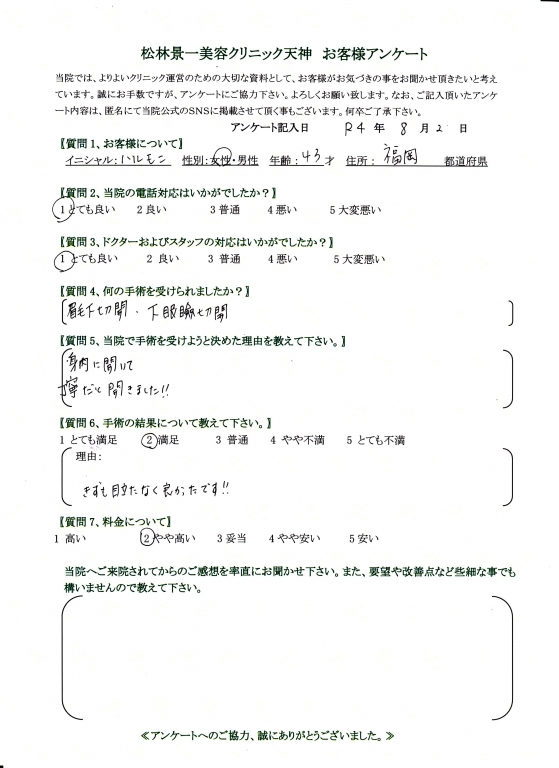 松林景一美容クリニック天神 お客様アンケート
当院では、よりよいクリニック運営のための大切な資料として、お客様がお気づきの事をお聞かせ頂きたいと考え
ています。誠にお手数ですが、アンケートにご協力下さい。よろしくお願い致します。なお、ご記入頂いたアンケ
ート内容は、匿名にて当院公式のSNSに掲載させて頂く事もございます。何卒ご了承下さい。
アンケート記入日 R4 年 8 月 2 日
【質問1、お客様について】
イニシャル：ハルモニ 性別：女性・男性 年齢：43才 住所：福岡 都道府県
【質問2、当院の電話対応はいかがでしたか？】
1とても良い 2良い 3普通 4悪い 5大変悪い
【質問3、ドクターおよびスタッフの対応はいかがでしたか？】
1とても良い 2 良い 3 普通 4悪い 5大変悪い
【質問4、何の手術を受けられましたか？】
眉毛下切開・下眼瞼切開
【質問5、当院で手術を受けようと決めた理由を教えて下さい。】
身内に聞いて
寧だと聞きました!!
【質問6、手術の結果について教えて下さい。】
1 とても満足 2満足 3 普通 4 やや不満 5 とても不満
理由：
きずも目立たなく良かったです!!
【質問7、料金について】
1 高い 2やや高い 3妥当 4やや安い 5安い
当院へご来院されてからのご感想を率直にお聞かせ下さい。また、要望や改善点など些細な事でも
構いませんので教えて下さい。
≪アンケートへのご協力、誠にありがとうございました。≫